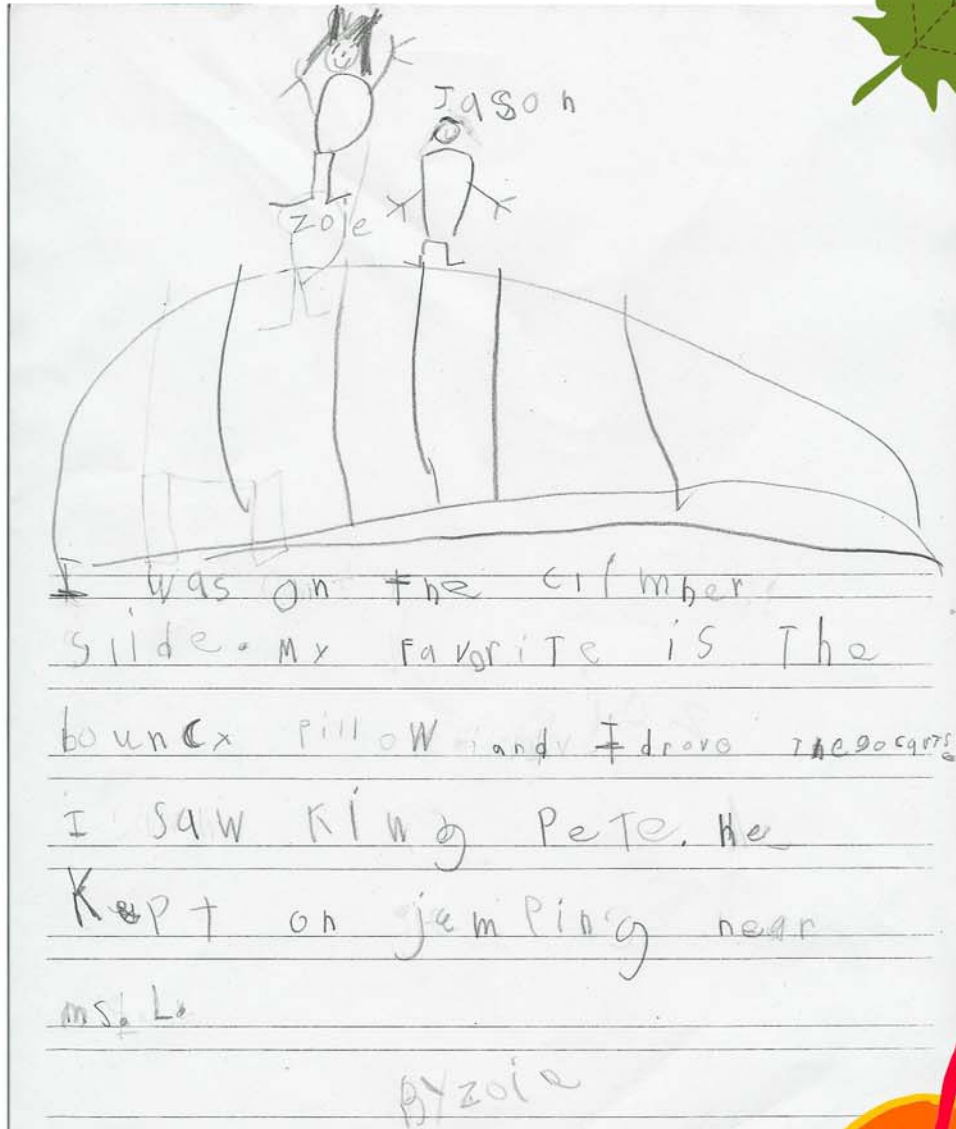 Jason
zoie
I was on the clımber
slide. My FavoriTe is The
bouncy PillOW and I drove The gocarTs
I saw KiNg PeTe. He
Kept on jumPing near
ms. L.
By zoie